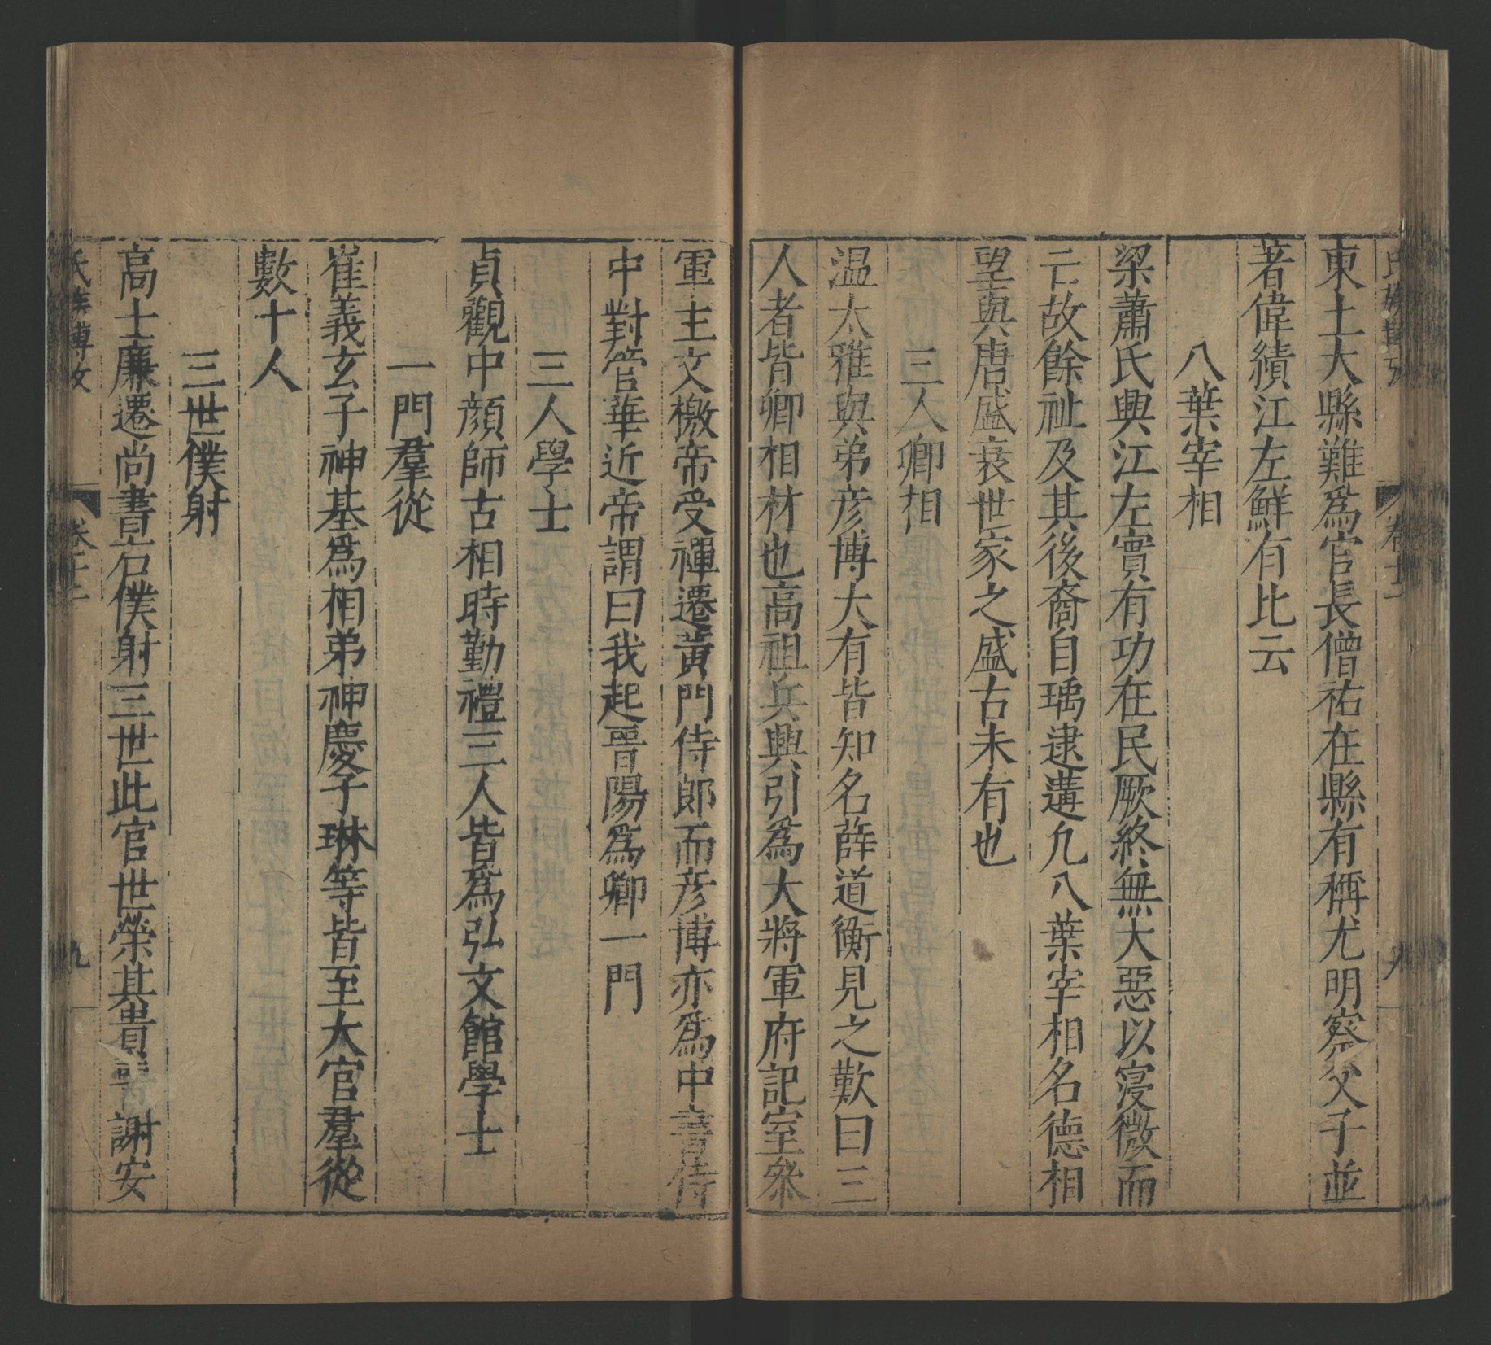 東土大縣難爲官長僧祐在縣有稱尤明察父子並
著偉績江左鮮有比云
八葉宰相
梁蕭氏興江左實有功在民厥終無大惡以寖微而
亡故餘祉及其後裔自瑀逮遘凢八葉宰相名德相
望與唐盛衰世家之盛古未有也
三人卿相
温大雅與弟彦博大有皆知名薛道衡見之歎曰三
人者皆卿相材也高祖兵興引爲大將軍府記室叅
軍主文檄帝受禪遷黄門侍郎而彦博亦爲中書侍
中對管華近帝謂曰我起晉陽爲卿一門
三人學士
貞觀中顔師古相時勤禮三人皆爲弘文館學士
一門羣從
崔義玄子神基爲相弟神慶子琳等皆至大官羣從
數十人
三世僕射
高士廉遷尚書右僕射三世此官世榮其貴 謝安
氏族博攷
卷十二
九